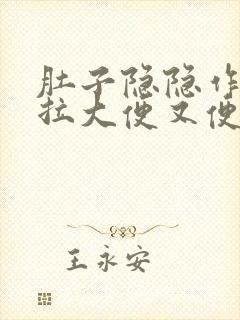 肚子隐隐作
拉大便又便
王永安